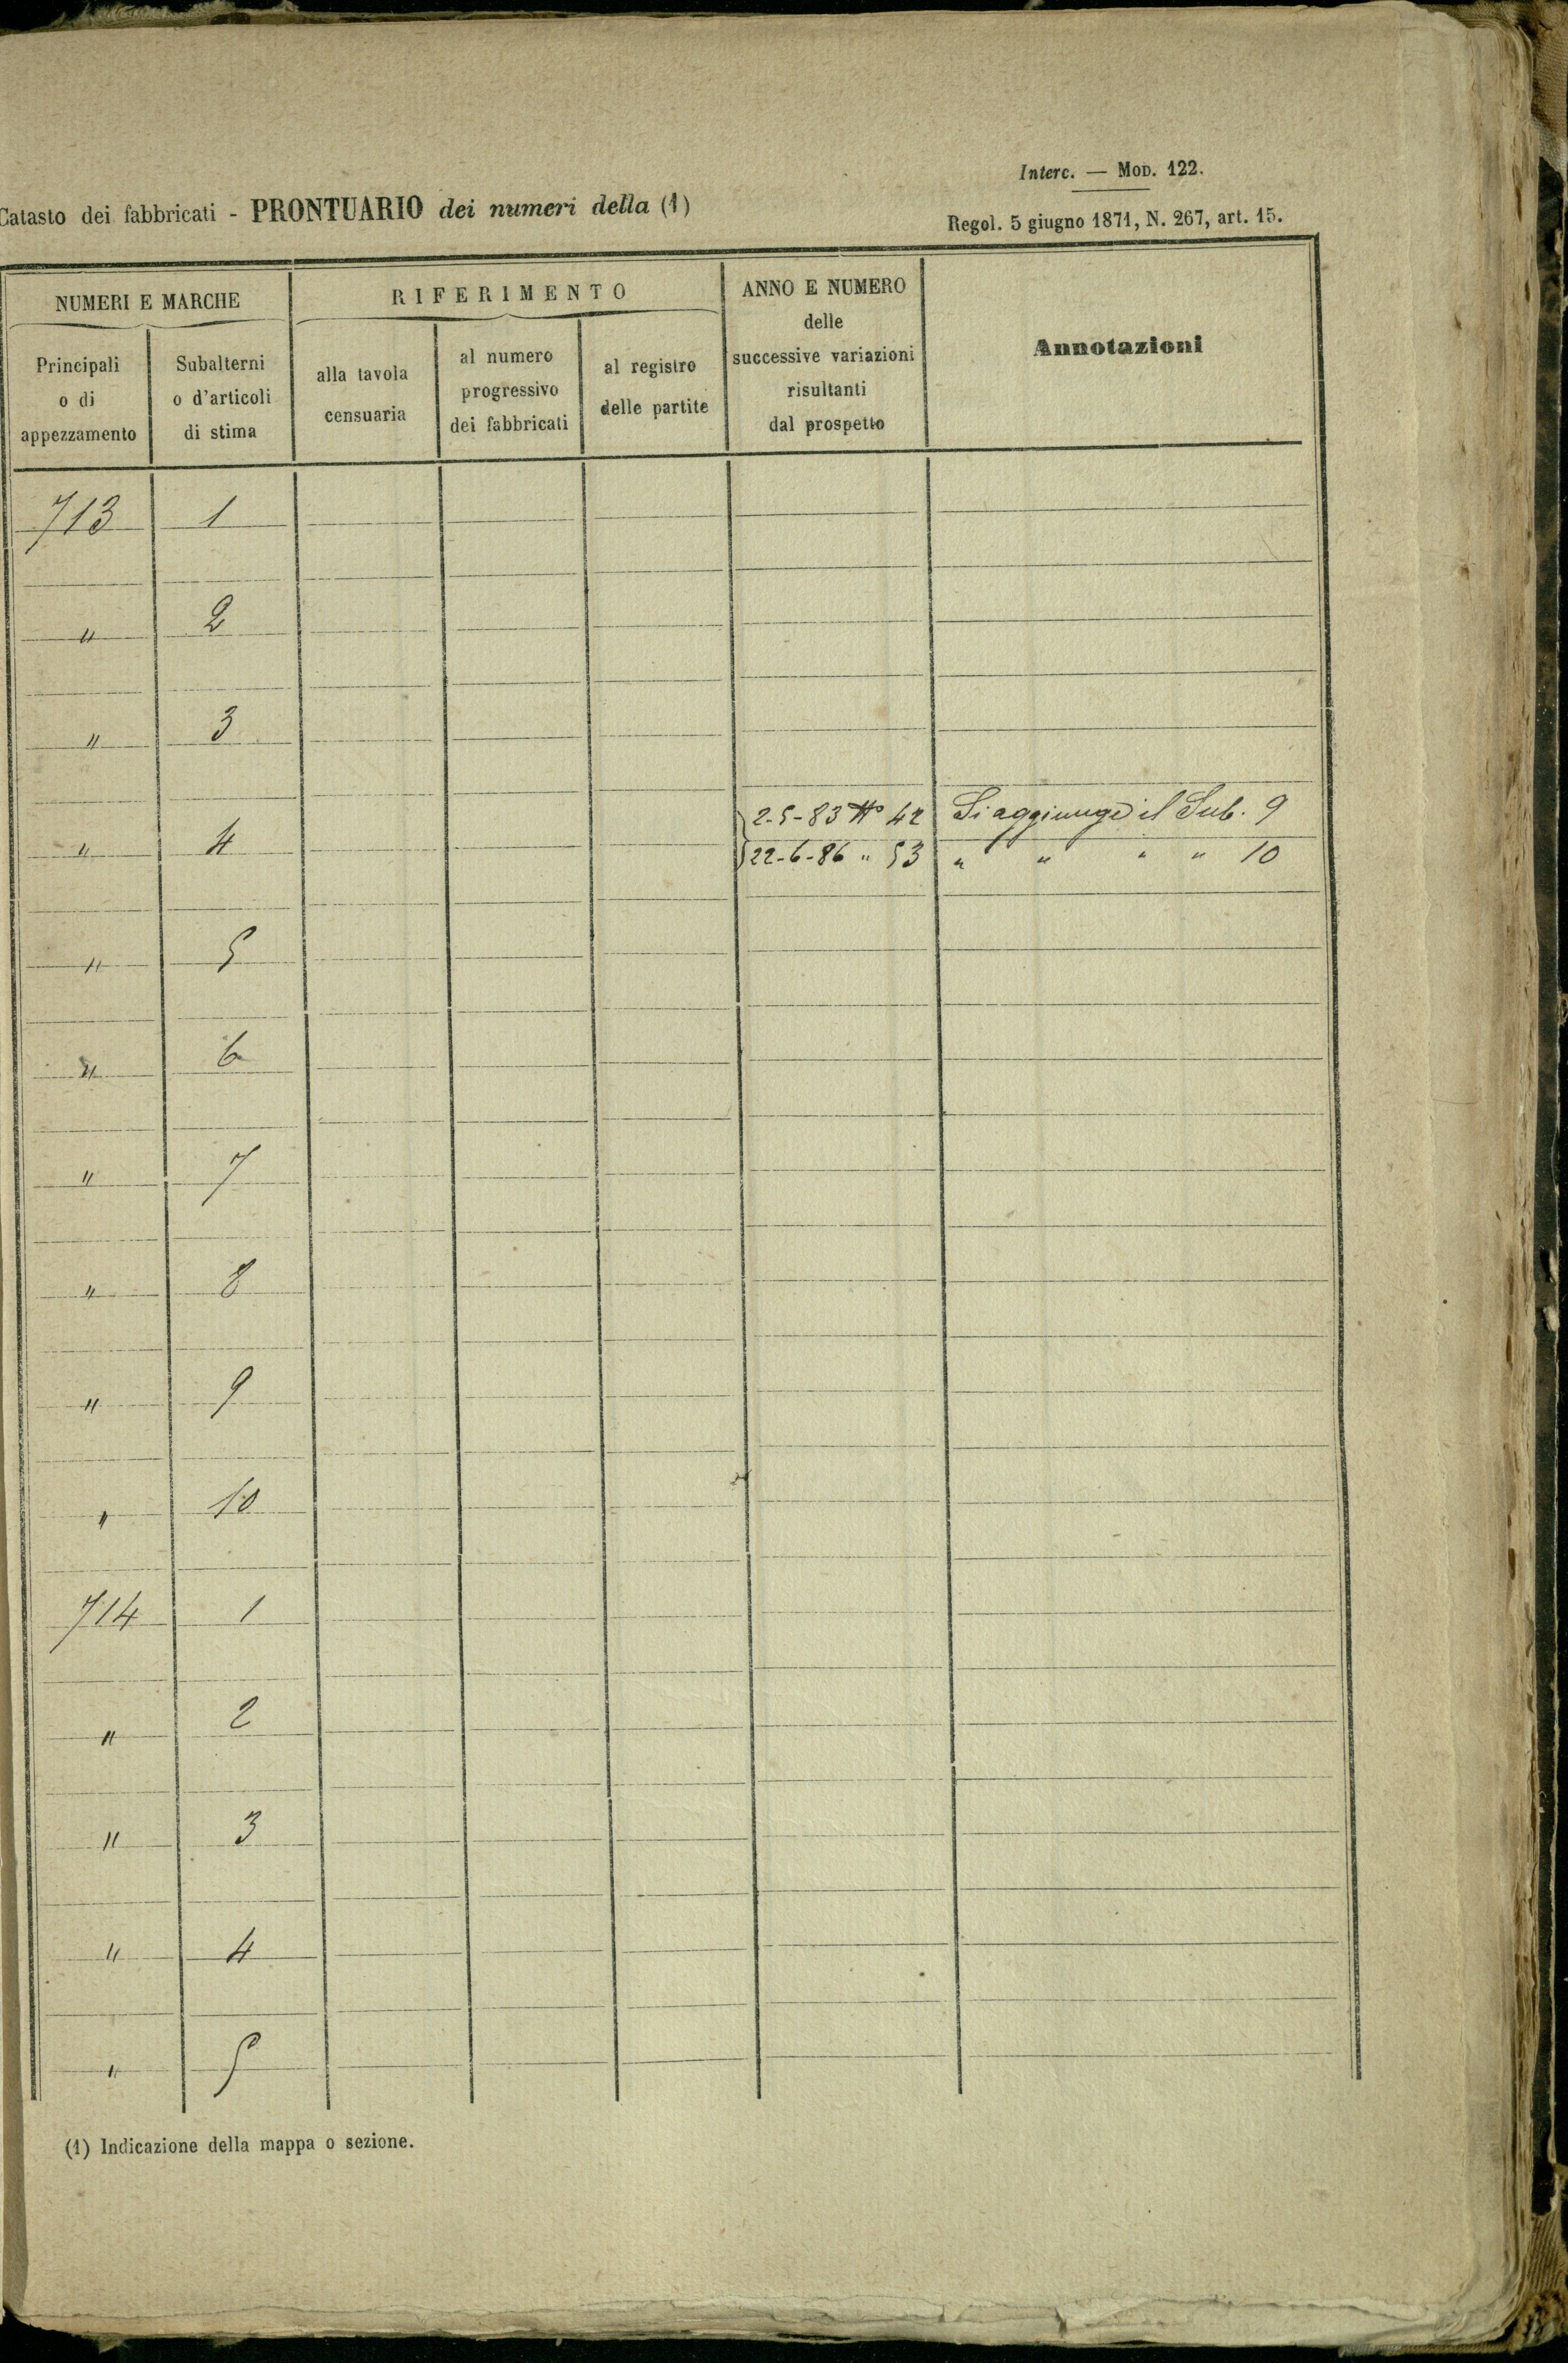 Interc. — MOD. 122.
Catasto dei fabbricati - PRONTUARIO dei numeri della (1)
Regol. 5 giugno 1871, N. 267, art. 15.
NUMERI E MARCHE
Principali
o di
appezzamento
Subalterni
o d'articoli
di stima
RIFERIMENTO
alla tavola
censuaria
al numero
progressivo
dei fabbricati
al registro
delle partite
ANNO E NUMERO
delle
successive variazioni
risultanti
dal prospetto
Annotazioni
713 1
" 2
" 3
2-5-83 No 42 Si aggiunge il Sub. 9
" 4
22-6-86 " 53 " " " " 10
" 5
" 6
" 7
" 8
" 9
" 10
714 1
" 2
" 3
" 4
" 5
(1) Indicazione della mappa o sezione.